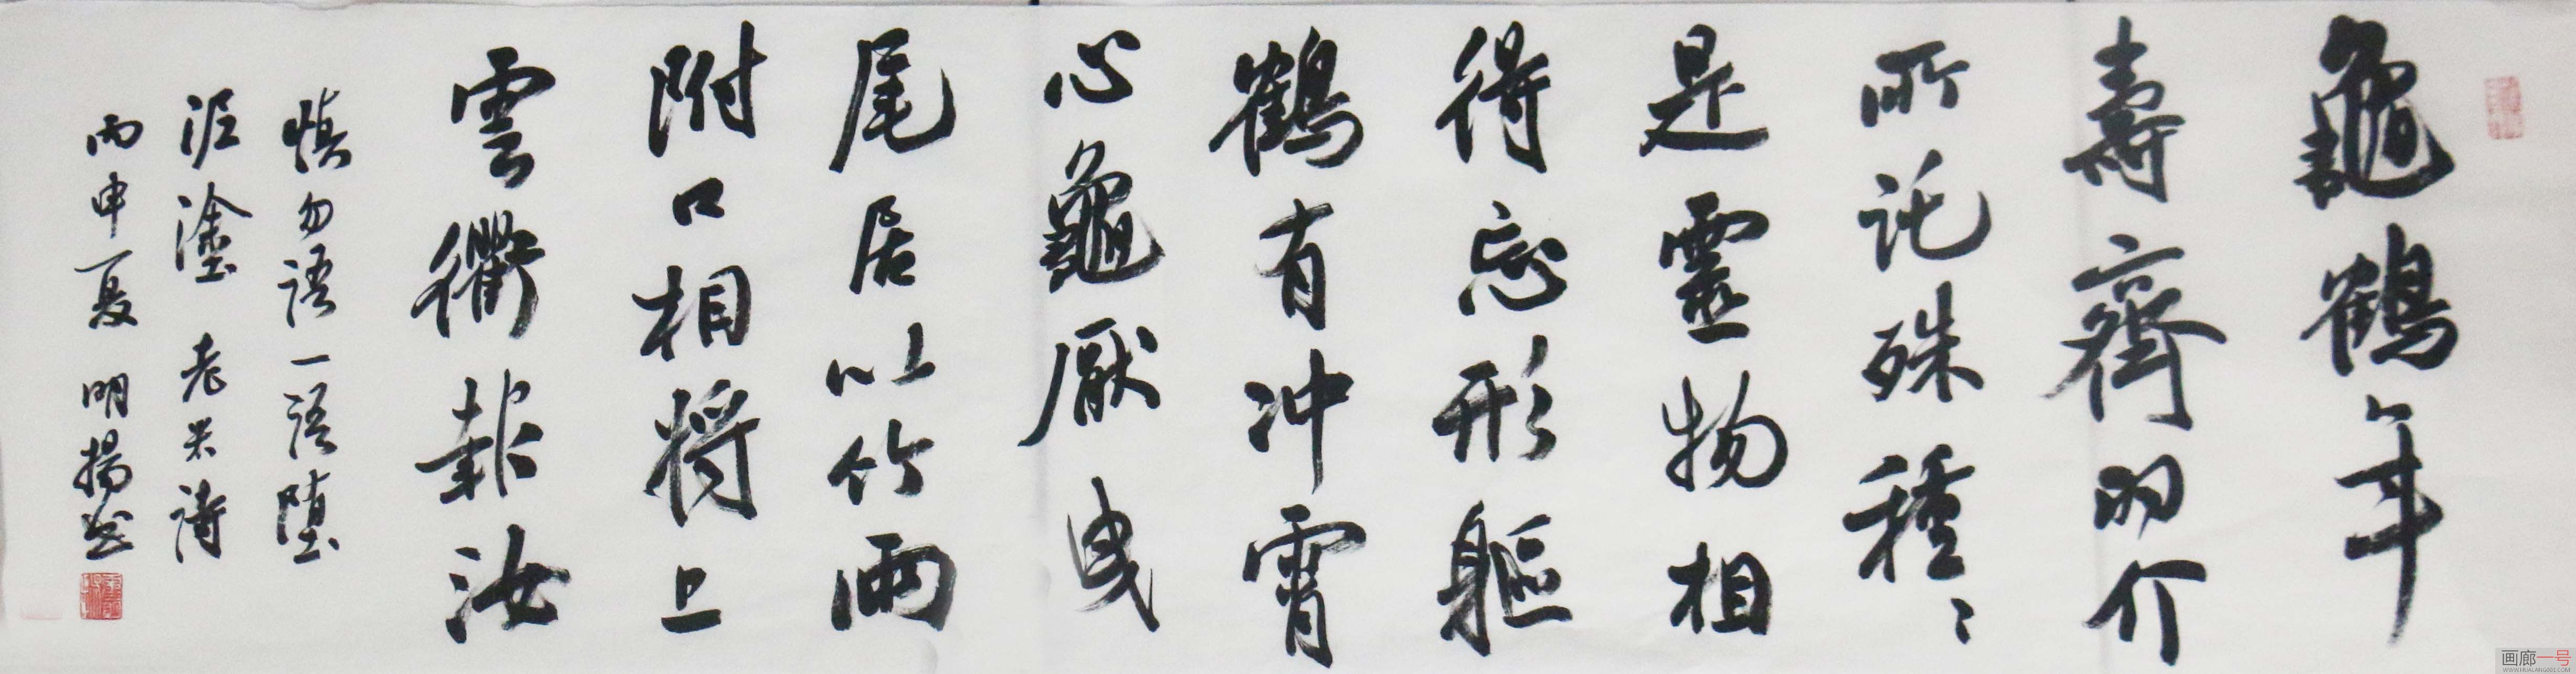 龜鶴年
壽齊羽介
所託殊種種
是靈物相
得忘形軀
鶴有冲霄
心龜厭曳
尾居以竹兩
附口相將上
雲衢報汝
慎勿語一語墮
泥塗 老米詩
丙申夏 明揚書
画廊一号
WWW.HUALANG001.COM